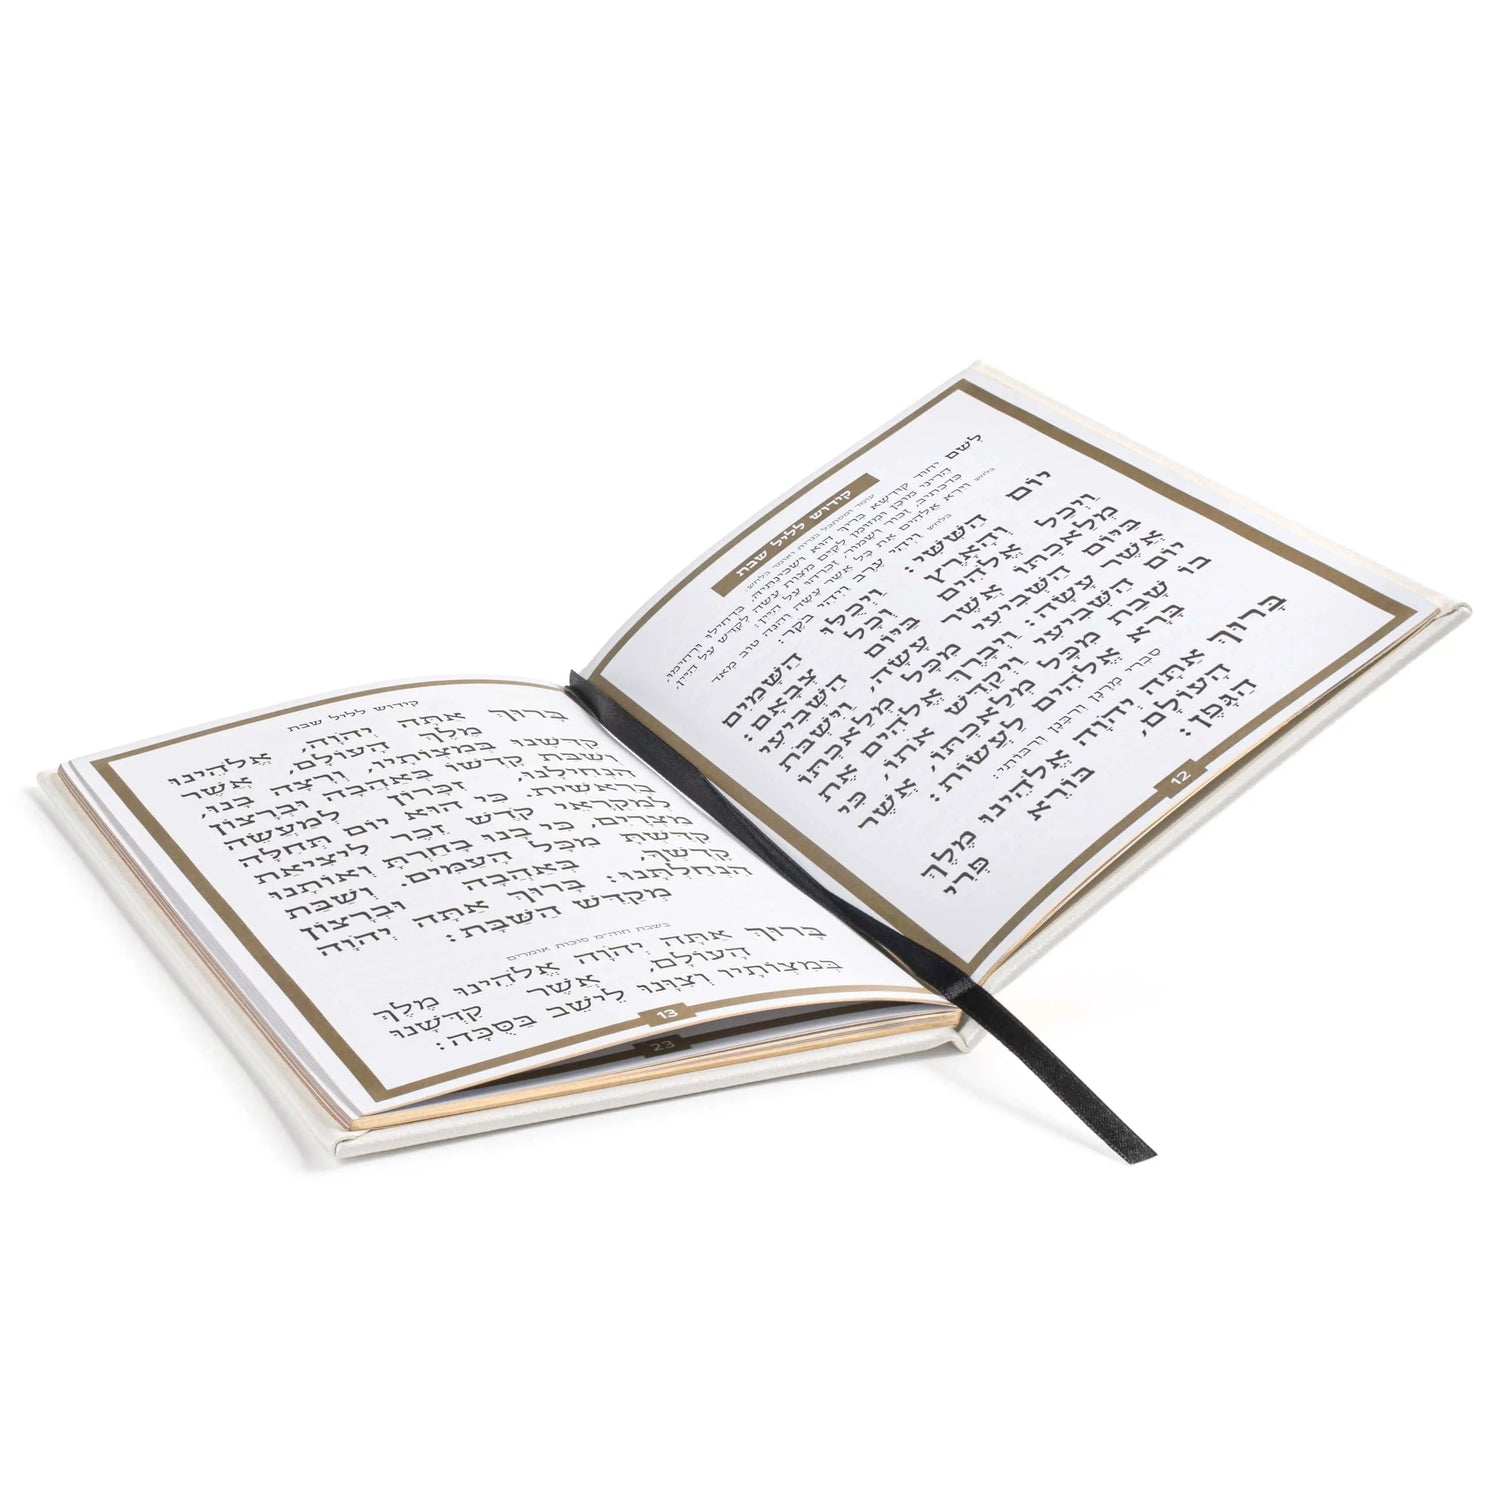 קידוש לליל שבת
עומד ומסתכל בנרות ואומר בלחש:
לְשֵׁם יחוד קודשא בריך הוא ושכינתיה, בדחילו ורחימו,
הריני מוכן ומזומן לקיים מצות עשה לקדש על היין,
כדכתיב, זכור ושמור, זכרהו על היין:
בלחש וירא אלהים את כל אשר עשה והנה טוב מאד
בלחש ויהי ערב ויהי בקר:
יוֹם הַשִּׁשִּׁי: וַיְכֻלּוּ הַשָּׁמַיִם
וְהָאָרֶץ וְכָל צְבָאָם:
וַיְכַל אֱלֹהִים בַּיּוֹם הַשְּׁבִיעִי
מְלַאכְתּוֹ אֲשֶׁר עָשָׂה, וַיִּשְׁבֹּת
בַּיּוֹם הַשְּׁבִיעִי מִכָּל מְלַאכְתּוֹ
אֲשֶׁר עָשָׂה: וַיְבָרֶךְ אֱלֹהִים אֶת
יוֹם הַשְּׁבִיעִי וַיְקַדֵּשׁ אֹתוֹ, כִּי
בוֹ שָׁבַת מִכָּל מְלַאכְתּוֹ, אֲשֶׁר
בָּרָא אֱלֹהִים לַעֲשׂוֹת:
סַבְרִי מָרָנָן וְרַבָּנָן וְרַבּוֹתַי:
בָּרוּךְ אַתָּה יְהֹוָה אֱלֹהֵינוּ מֶלֶךְ
הָעוֹלָם, בּוֹרֵא פְּרִי
הַגָּפֶן:
12
קידוש לליל שבת
בָּרוּךְ אַתָּה יְהֹוָה, אֱלֹהֵינוּ
מֶלֶךְ הָעוֹלָם, אֲשֶׁר
קִדְּשָׁנוּ בְּמִצְוֹתָיו, וְרָצָה בָנוּ,
וְשַׁבַּת קָדְשׁוֹ בְּאַהֲבָה וּבְרָצוֹן
הִנְחִילָנוּ, זִכָּרוֹן לְמַעֲשֵׂה
בְרֵאשִׁית. כִּי הוּא יוֹם תְּחִלָּה
לְמִקְרָאֵי קֹדֶשׁ זֵכֶר לִיצִיאַת
מִצְרָיִם, כִּי בָנוּ בָחַרְתָּ וְאוֹתָנוּ
קִדַּשְׁתָּ מִכָּל הָעַמִּים. וְשַׁבַּת
קָדְשְׁךָ, בְּאַהֲבָה וּבְרָצוֹן
הִנְחַלְתָּנוּ: בָּרוּךְ אַתָּה יְהֹוָה
מְקַדֵּשׁ הַשַּׁבָּת:
בשבת חוה״מ סוכות אומרים
בָּרוּךְ אַתָּה יְהֹוָה אֱלֹהֵינוּ מֶלֶךְ
הָעוֹלָם, אֲשֶׁר קִדְּשָׁנוּ
בְּמִצְוֹתָיו וְצִוָּנוּ לֵישֵׁב בַּסֻּכָּה:
13
23